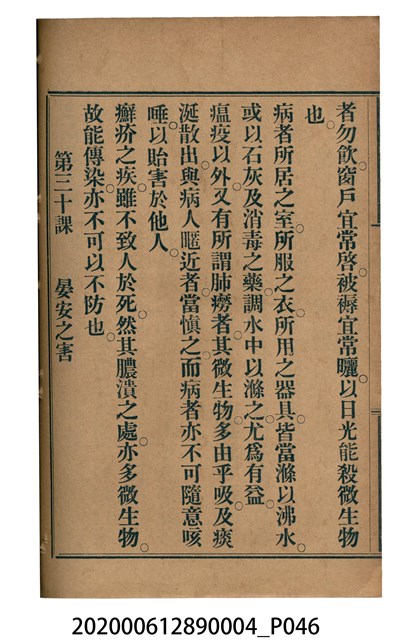 者勿飲。窗戶宜常啓。被褥宜常曬。以日光能殺微生物
也。
病者所居之室。所服之衣。所用之器具。皆當滌以沸水。
或以石灰及消毒之藥。調水中以滌之。尤爲有益。
瘟疫以外。又有所謂肺癆者。其微生物。多由乎吸及痰
涎散出。與病人暱近者。當慎之。而病者亦不可隨意咳
唾以貽害於他人。
癬疥之疾。雖不致人於死。然其膿潰之處。亦多微生物。
故能傳染。亦不可以不防也。
第三十課 晏安之害
202000612890004_P046